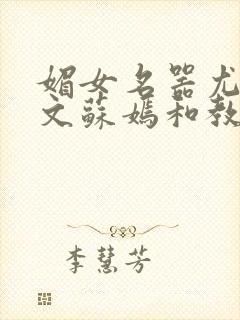 媚女名器尤
文蘇媽和教
李慧芳